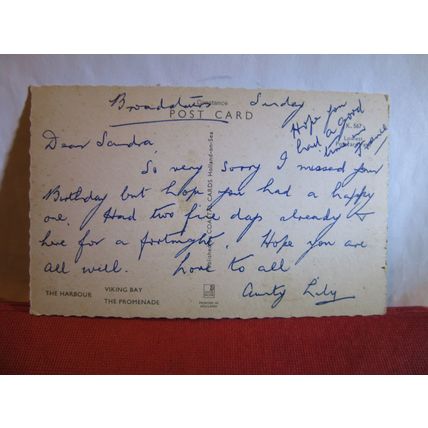 Broadstairs Sunday
POST CARD
Hope you
had a good
time in
Dear Sandra,
So very sorry I missed your
Birthday but hope you had a happy
one. Had two fine days already &
here for a fortnight. Hope you are
all well. Love to all
Aunty Lily
THE HARBOUR
VIKING BAY
THE PROMENADE
PRINTED IN
HOLLAND
COASTAL CARDS Holland-on-Sea